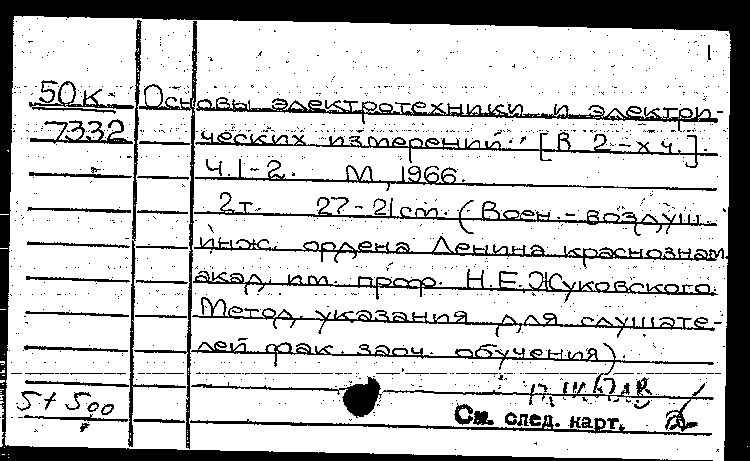 1
50к Основы электротехники и электри-
7332 ческих измерений. [В 2-х ч.].
Ч.1-2. М., 1966.
2т. 27-21см. (Воен.-воздуш.
инж. ордена Ленина краснознам.
акад. им. проф. Н.Е.Жуковского.
Метод. указания для слушате-
лей фак. заоч. обучения).
5+500
См. след. карт.